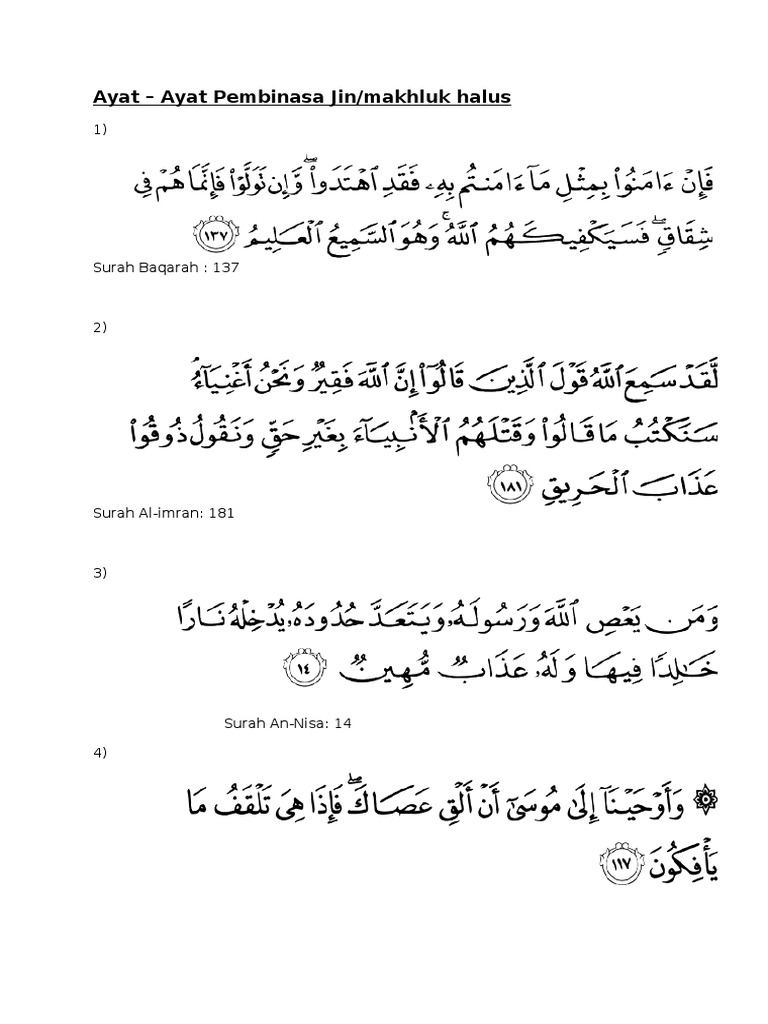 Ayat – Ayat Pembinasa Jin/makhluk halus
1)
فَإِنْ ءَامَنُوا۟ بِمِثْلِ مَآ ءَامَنتُم بِهِۦ فَقَدِ ٱهْتَدَوا۟ ۖ وَّإِن تَوَلَّوْا۟ فَإِنَّمَا هُمْ فِى
شِقَاقٍ ۖ فَسَيَكْفِيكَهُمُ ٱللَّهُ ۚ وَهُوَ ٱلسَّمِيعُ ٱلْعَلِيمُ ١٣٧
Surah Baqarah : 137
2)
لَّقَدْ سَمِعَ ٱللَّهُ قَوْلَ ٱلَّذِينَ قَالُوٓا۟ إِنَّ ٱللَّهَ فَقِيرٌ وَنَحْنُ أَغْنِيَآءُ ۘ
سَنَكْتُبُ مَا قَالُوا۟ وَقَتْلَهُمُ ٱلْأَنۢبِيَآءَ بِغَيْرِ حَقٍّ وَنَقُولُ ذُوقُوا۟
عَذَابَ ٱلْحَرِيقِ ١٨١
Surah Al-imran: 181
3)
وَمَن يَعْصِ ٱللَّهَ وَرَسُولَهُۥ وَيَتَعَدَّ حُدُودَهُۥ يُدْخِلْهُ نَارًا
خَـٰلِدًا فِيهَا وَلَهُۥ عَذَابٌ مُّهِينٌ ١٤
Surah An-Nisa: 14
4)
۞ وَأَوْحَيْنَآ إِلَىٰ مُوسَىٰٓ أَنْ أَلْقِ عَصَاكَ ۖ فَإِذَا هِىَ تَلْقَفُ مَا
يَأْفِكُونَ ١١٧